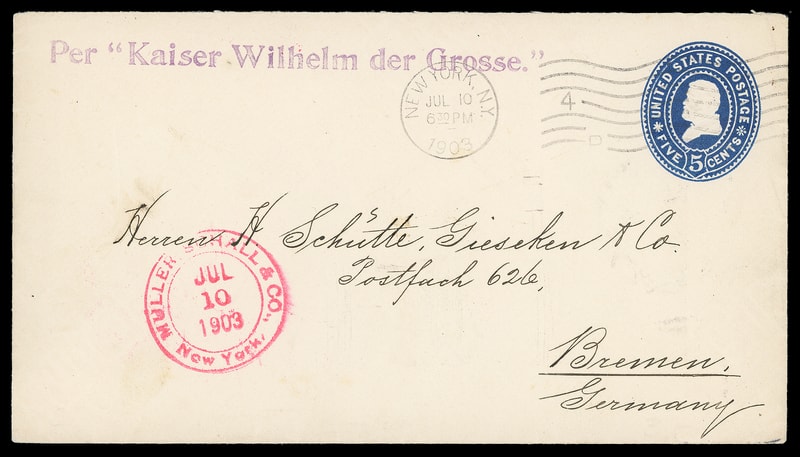 Per "Kaiser Wilhelm der Grosse."
NEW YORK, N.Y.
JUL 10
6 30 PM
1903
4
D
UNITED STATES POSTAGE
FIVE 5 CENTS
Herren H. Schütte, Gieseken & Co.
Postfach 626,
Bremen,
Germany
MULLER SCHALL & CO.
JUL
10
1903
New York.